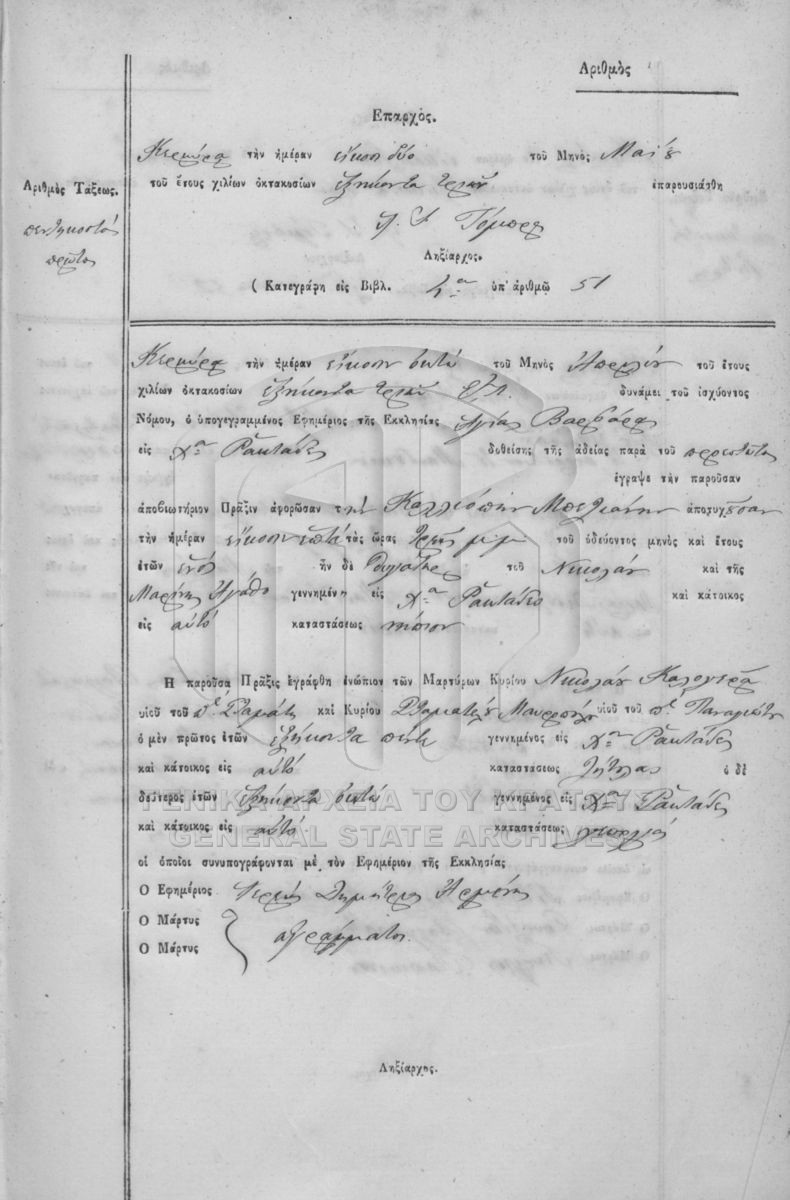 Αριθμὸς
Επαρχὸς.
Κερκύρα τὴν ἡμέραν εἴκοσι δύο τοῦ Μηνὸς Μαΐου
Αριθμὸς Τάξεως. τοῦ ἔτους χιλίων ὀκτακοσίων ἑξήκοντα τριῶν ἐπαρουσιάσθη
πεντηκοστὸς
πρῶτος
Ληξίαρχος.
( Κατεγράφη εἰς Βιβλ. ὑπ' ἀριθμῷ 51
Κερκύρα τὴν ἡμέραν εἴκοσι ὀκτὼ τοῦ Μηνὸς Ἀπριλίου τοῦ ἔτους
χιλίων ὀκτακοσίων ἑξήκοντα τριῶν δυνάμει τοῦ ἰσχύοντος
Νόμου, ὁ ὑπογεγραμμένος Ἐφημέριος τῆς Ἐκκλησίας Ἁγίας Βαρβάρας
εἰς Χον Ρακτάδες δοθείσης τῆς ἀδείας παρὰ τοῦ
ἔγραψε τὴν παροῦσαν
ἀποβιωτήριον Πρᾶξιν ἀφορῶσαν τὴν Καλλιόπην ἀποψυχήσασαν
τὴν ἡμέραν εἴκοσι ἑπτὰ τὰς ὥρας τρεῖς μ.μ. τοῦ ὁδεύοντος μηνὸς καὶ ἔτους
ἐτῶν ἑνὸς ἦν δὲ θυγάτηρ τοῦ Νικολάου καὶ τῆς
Μαρίνης γεννημένη εἰς Χον Ρακτάδες καὶ κάτοικος
εἰς αὐτὸ καταστάσεως νήπιον
Η παροῦσα Πρᾶξις ἐγράφθη ἐνώπιον τῶν Μαρτύρων Κυρίου Νικολάου Καλογερᾶ
υἱοῦ τοῦ ποτὲ Σταμάτη καὶ Κυρίου υἱοῦ τοῦ ποτὲ Παναγιώτου
ὁ μὲν πρῶτος ἐτῶν ἑξήκοντα πέντε γεννημένος εἰς Χον Ρακτάδες
καὶ κάτοικος εἰς αὐτὸ καταστάσεως ὁ δὲ
δεύτερος ἐτῶν ἑξήκοντα ὀκτὼ γεννημένος εἰς Χον Ρακτάδες
καὶ κάτοικος εἰς αὐτὸ καταστάσεως γεωργὸς
οἱ ὁποῖοι συνυπογράφονται μὲ τὸν Ἐφημέριον τῆς Ἐκκλησίας
Ο Ἐφημέριος Ἱερεὺς Δημήτριος
Ο Μάρτυς
ἀγράμματοι
Ο Μάρτυς
Ληξίαρχος.
ΓΕΝΙΚΑ ΑΡΧΕΙΑ ΤΟΥ ΚΡΑΤΟΥΣ
GENERAL STATE ARCHIVES